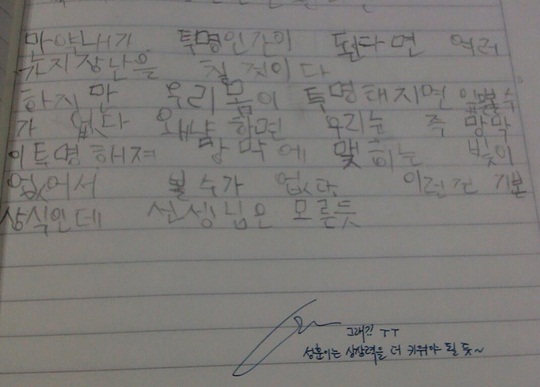 만약내가 투명인간이 된다면 여러
가지장난을 칠 것이다
하지만 우리몸이 투명해지면 앞볼수
가 없다 왜냐하면 우리눈 즉 망막
이투명해져 망막에 맺히는 빛이
없어서 볼수가 없다 이런건 기본
상식인데 선생님은 모른듯
그래긴 ㅜㅜ
성훈이는 상상력을 더 키워야 될 듯~